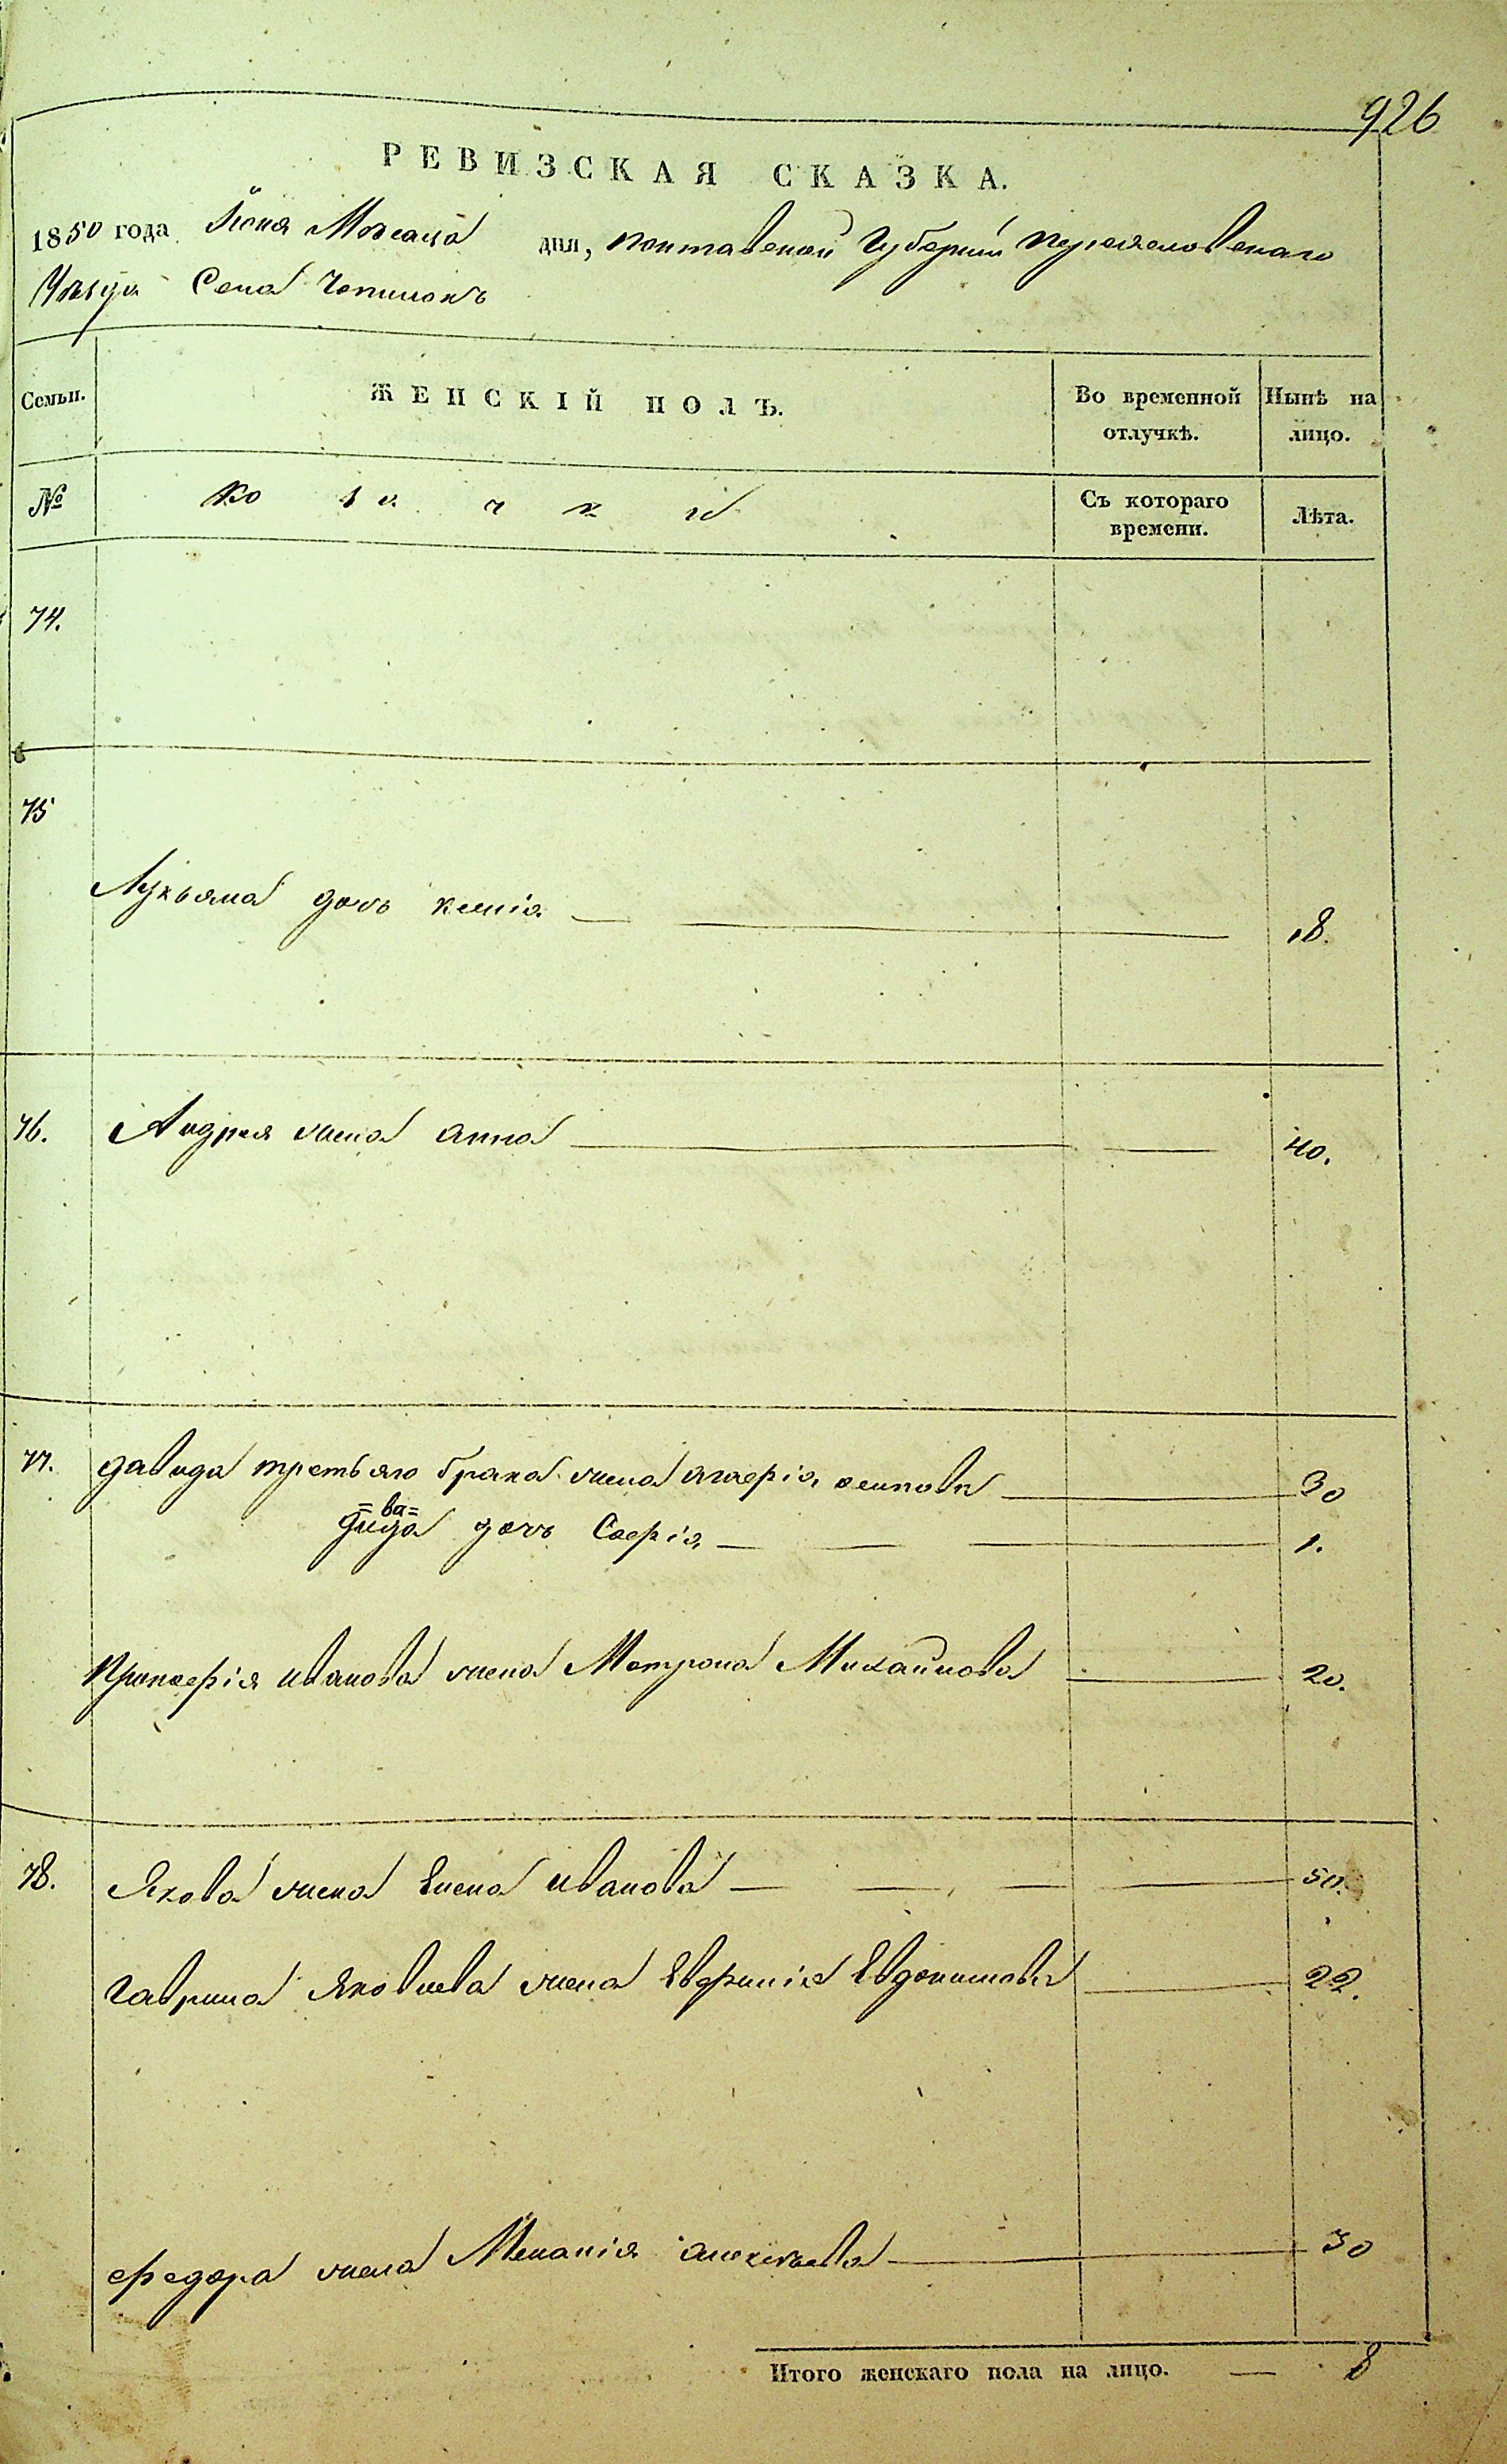 926
РЕВИЗСКАЯ СКАЗКА.
1850 года Июня Мѣсяца дня, Полтавской Губернии Переясловскаго
Уѣзда Села Чопилокъ
Семьи. ЖЕНСКІЙ ПОЛЪ. Во временной отлучкѣ. Нынѣ на лицо.
№ Козачки Съ котораго времени. Лѣта.
74.
75
Лукьяна дочь Ксенія 18.
76. Андрея жена Анна 40.
77. Давида третьяго брака жена Агафія Осипова 30
=ва=
Дида дочь Софія 1.
Прокофія Иванова жена Матрона Михайлова 20.
78. Якова жена Елена Иванова 50.
Гаврила Яковлева жена Евфимія Евдокимова 22.
Федора жена Меланія Алексѣева 30
Итого женскаго пола на лицо. — 8